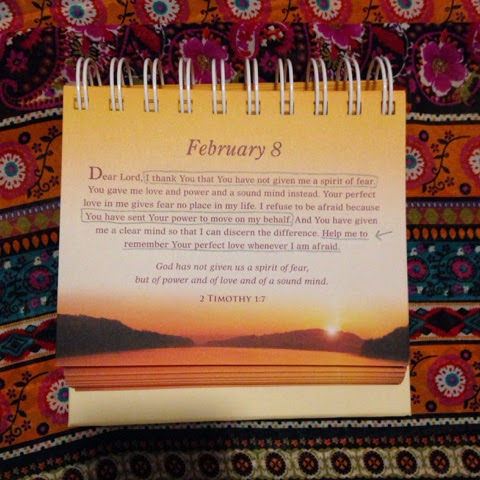 February 8
Dear Lord, I thank You that You have not given me a spirit of fear.
You gave me love and power and a sound mind instead. Your perfect
love in me gives fear no place in my life. I refuse to be afraid because
You have sent Your power to move on my behalf. And You have given
me a clear mind so that I can discern the difference. Help me to
remember Your perfect love whenever I am afraid.
God has not given us a spirit of fear,
but of power and of love and of a sound mind.
2 TIMOTHY 1:7